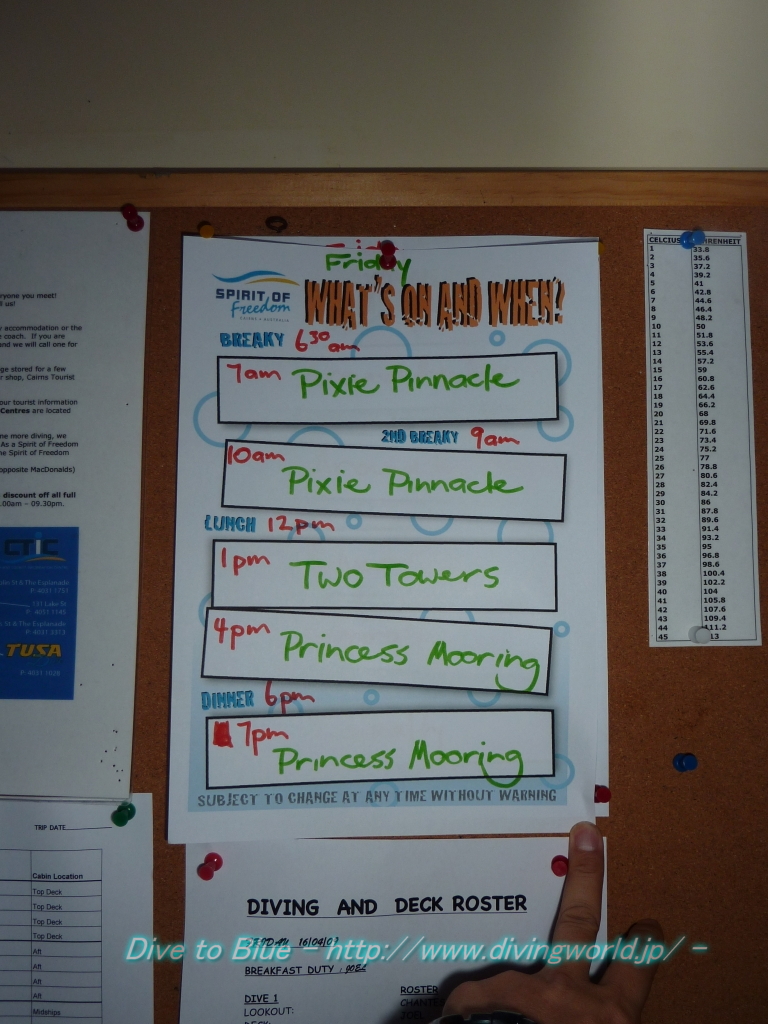 Friday
SPIRIT OF
Freedom
WHAT'S ON AND WHEN?
BREAKY 6 30 am
7am Pixie Pinnacle
2ND BREAKY 9am
10am Pixie Pinnacle
LUNCH 12pm
1pm Two Towers
4pm Princess Mooring
DINNER 6pm
7pm Princess Mooring
SUBJECT TO CHANGE AT ANY TIME WITHOUT WARNING
DIVING AND DECK ROSTER
BREAKFAST DUTY
DIVE 1
LOOKOUT:
ROSTER
TRIP DATE
Cabin Location
Top Deck
Top Deck
Top Deck
Top Deck
Aft
Aft
Aft
Aft
Midships
ryone you meet!
l us!
accommodation or the
coach. If you are
nd we will call one for
ge stored for a few
r shop, Cairns Tourist
our tourist information
Centres are located
ne more diving, we
As a Spirit of Freedom
he Spirit of Freedom
opposite MacDonalds)
discount off all full
.00am – 09.30pm.
CTIC
TUSA
CELCIUS
1 33.8
2 35.6
3 37.2
4 39.2
5 41
6 42.8
7 44.6
8 46.4
9 48.2
10 50
11 51.8
12 53.6
13 55.4
14 57.2
15 59
16 60.8
17 62.6
18 64.4
19 66.2
20 68
21 69.8
22 71.6
23 73.4
24 75.2
25 77
26 78.8
27 80.6
28 82.4
29 84.2
30 86
31 87.8
32 89.6
33 91.4
34 93.2
35 95
36 96.8
37 98.6
38 100.4
39 102.2
40 104
41 105.8
42 107.6
43 109.4
44 111.2
45 13
Dive to Blue - http://www.divingworld.jp/ -